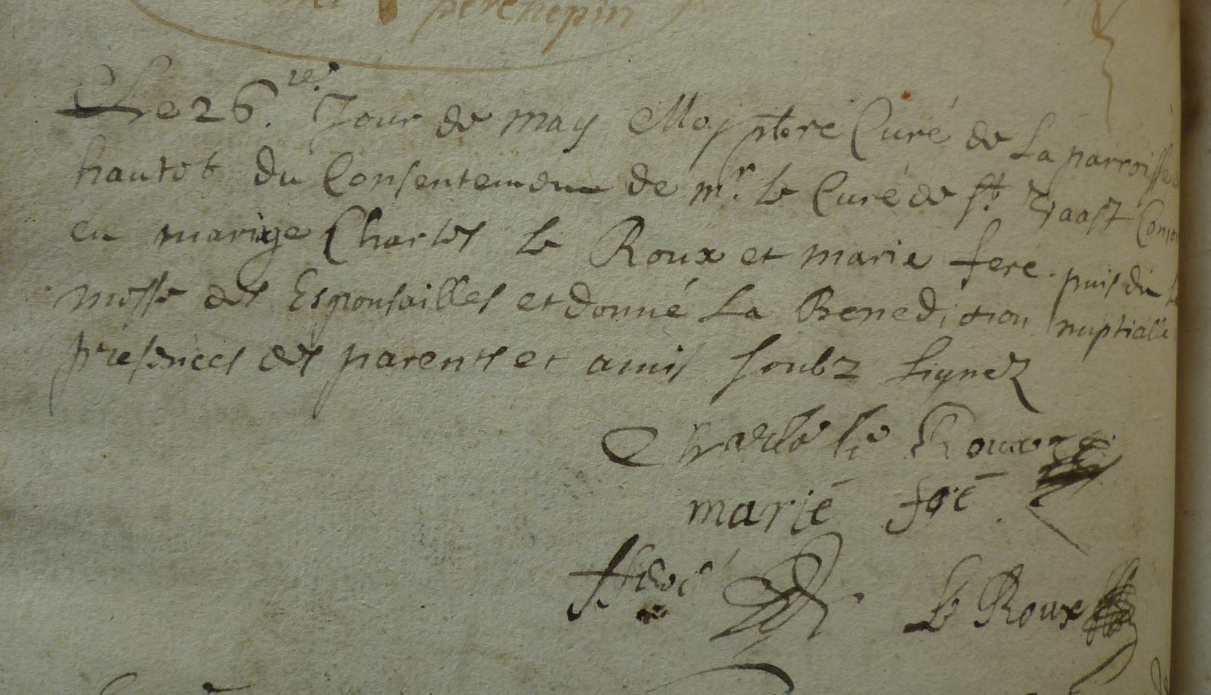 perchepin
Le 26.ie. Jour de may Moy ptbre Curé de La parroisse
hautot du Consentement de mr. le Curé de st. Vaast Conjoi
en mariage Charles le Roux et marie feré. puis dit la
messe des Espousailles et donné La Benediction nuptialle
présences des parents et amis soubz signez
Charles le Roux
marie feré
fferé le Roux